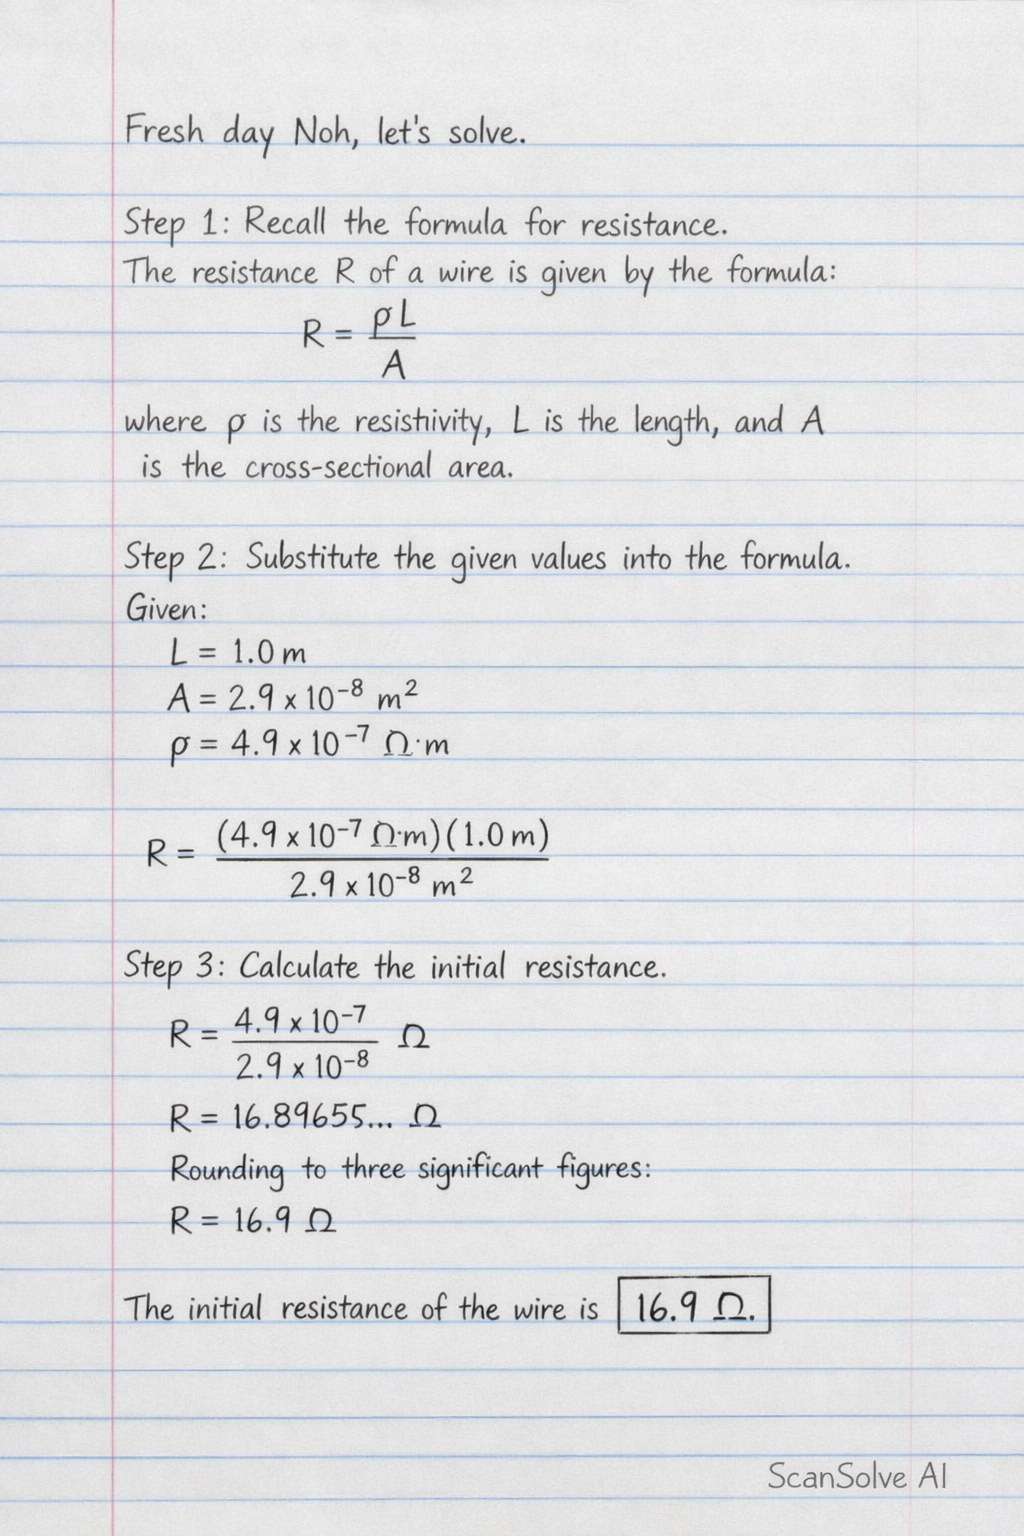 Fresh day Noh, let's solve.
Step 1: Recall the formula for resistance.
The resistance R of a wire is given by the formula:
R = ρL / A
where ρ is the resistivity, L is the length, and A
is the cross-sectional area.
Step 2: Substitute the given values into the formula.
Given:
L = 1.0 m
A = 2.9 x 10⁻⁸ m²
ρ = 4.9 x 10⁻⁷ Ω·m
R = (4.9 x 10⁻⁷ Ω·m)(1.0 m) / 2.9 x 10⁻⁸ m²
Step 3: Calculate the initial resistance.
R = 4.9 x 10⁻⁷ / 2.9 x 10⁻⁸ Ω
R = 16.89655... Ω
Rounding to three significant figures:
R = 16.9 Ω
The initial resistance of the wire is 16.9 Ω.
ScanSolve AI